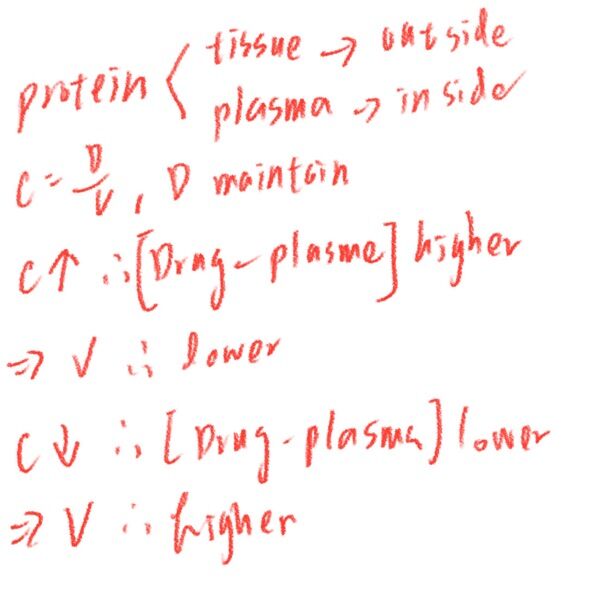 protein < tissue → outside
plasma → inside
C = D/V, D maintain
C↑ ∴ [Drug-plasme] higher
⇒ V ∴ lower
C↓ ∴ [Drug-plasma] lower
⇒ V ∴ higher